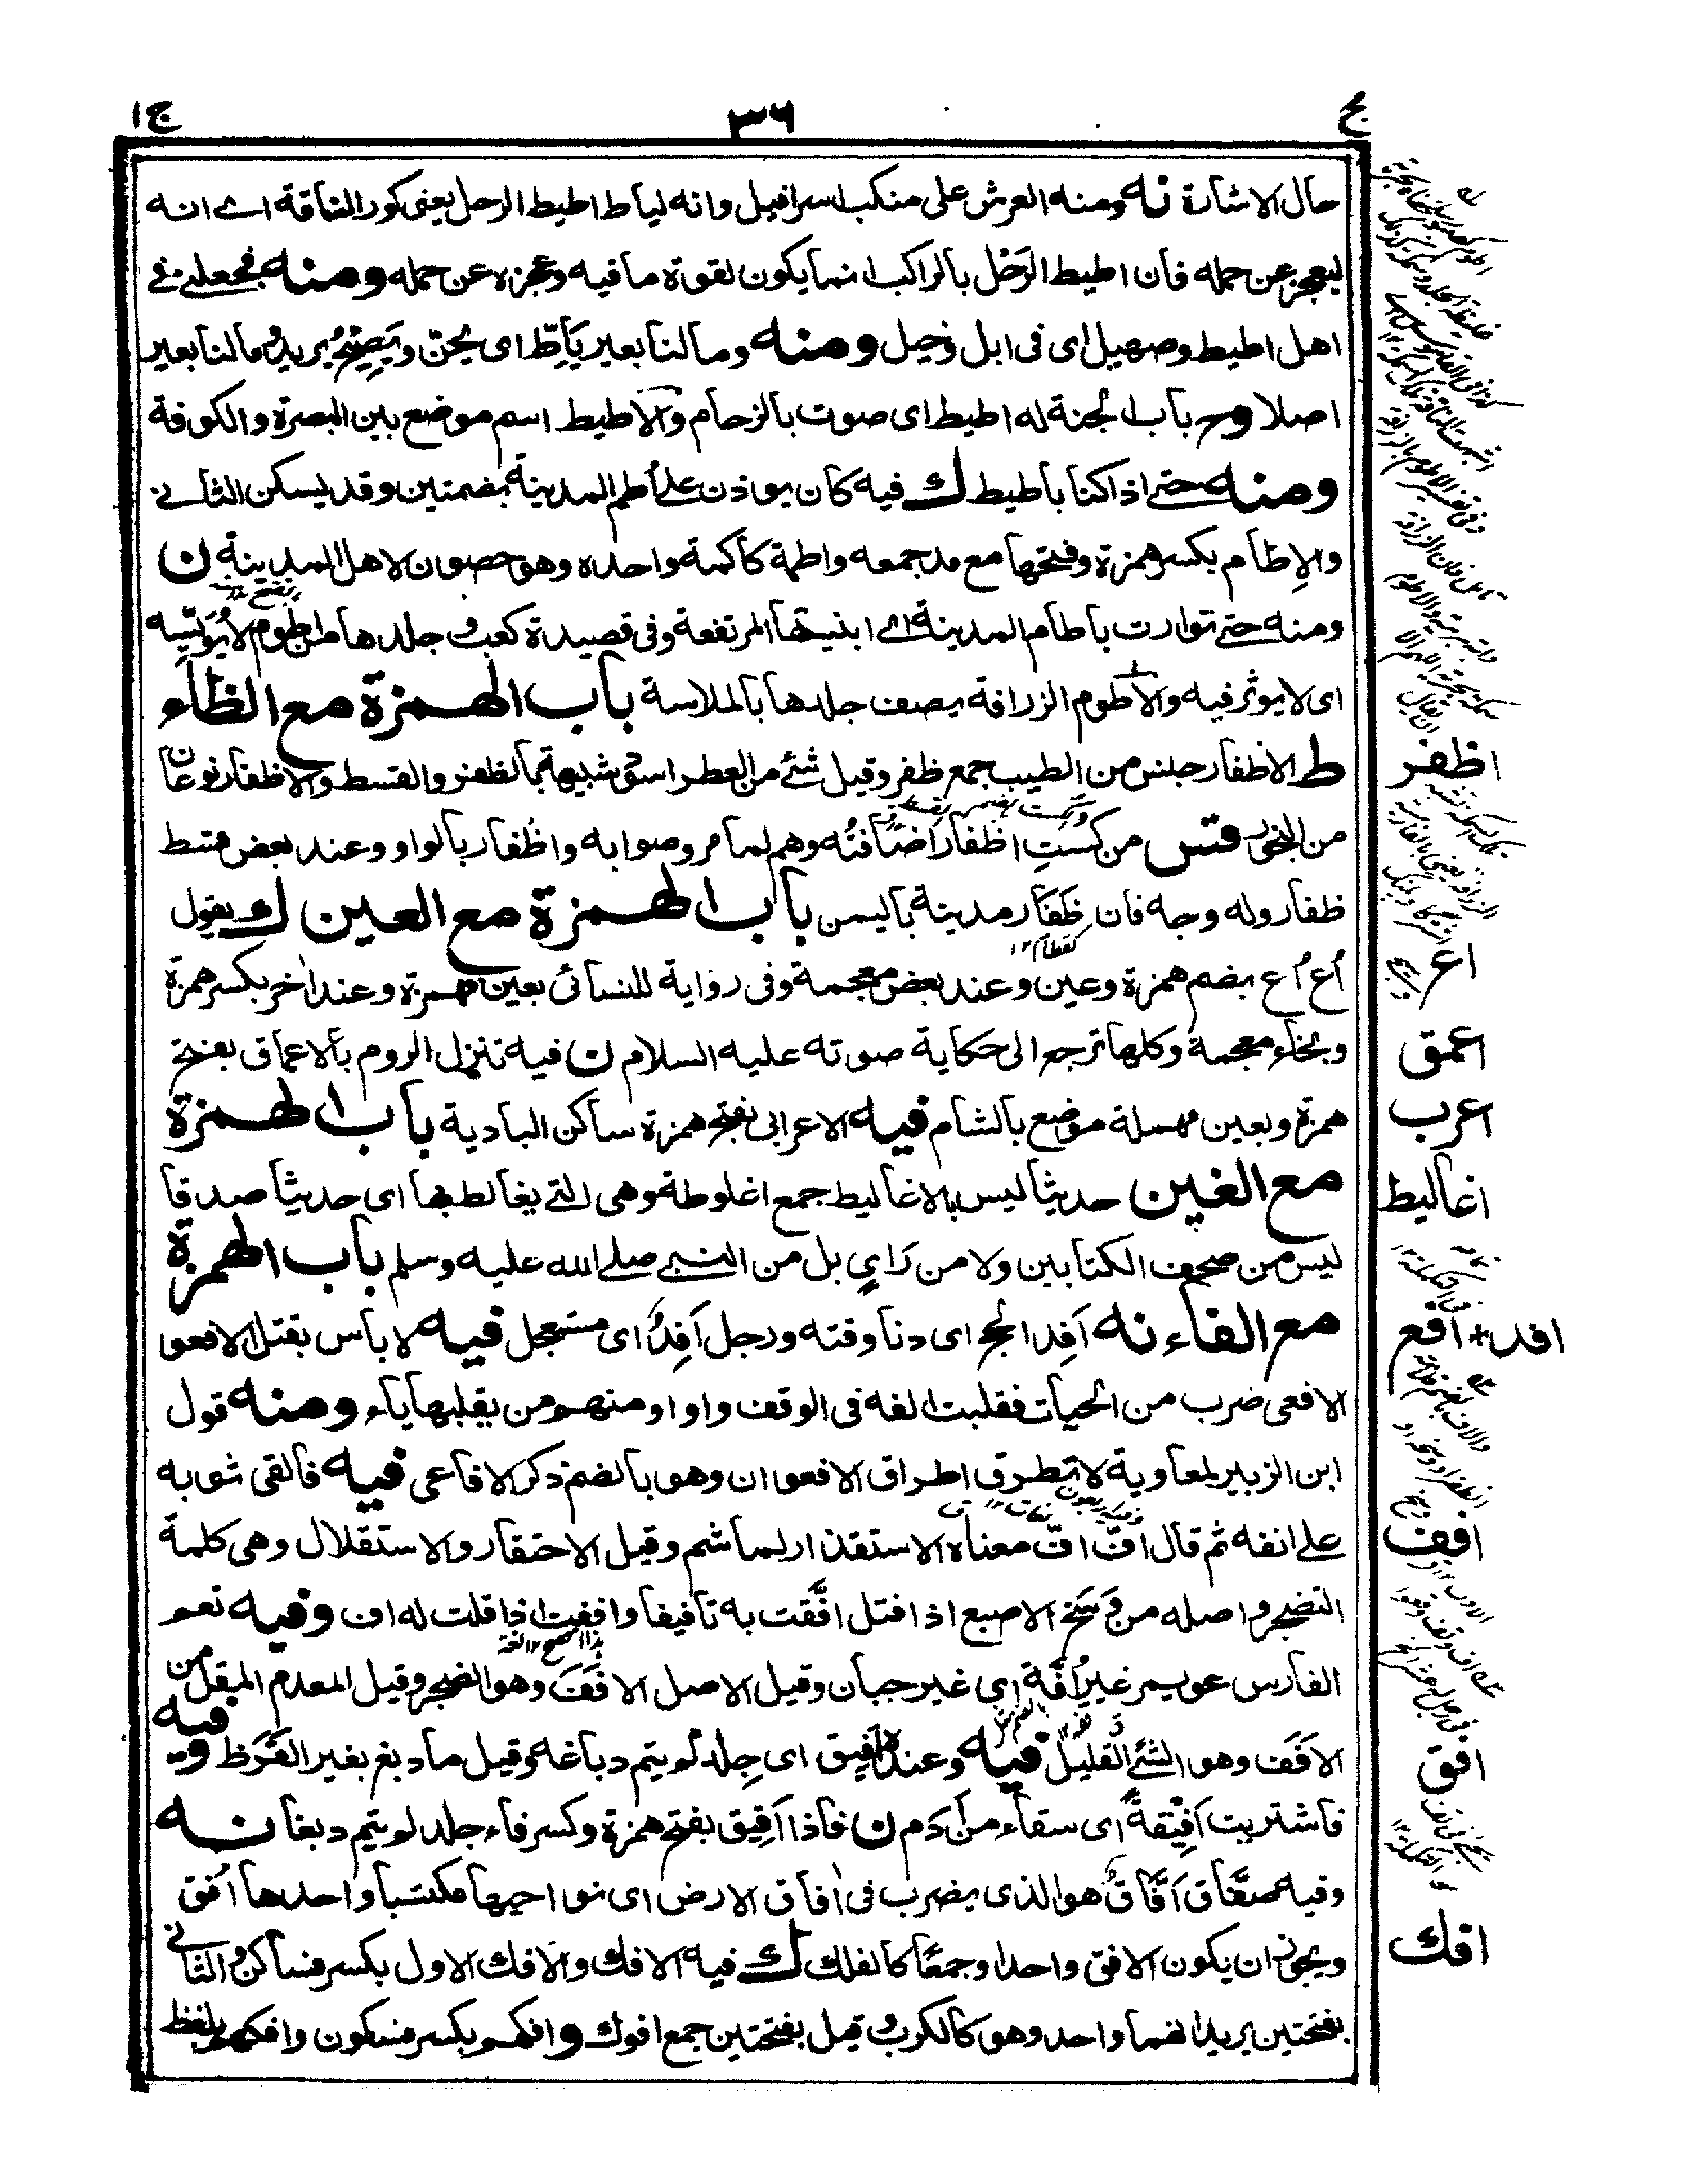 مج
٣٦
ج ١
حال الاشارة نه ومنه العرش على منكب اسرافيل وانه لياط اطيط الرحل يعنى كور الناقة اے انه
ليعجز عن حمله فان اطيط الرَحْل بالراكب انما يكون لقوة ما فيه وعجزه عن حمله ومنه فجعلنے فے
اهل اطيط وصهيل اى فى ابل وخيل ومنه وما لنا بعير يَاِطّ اى يحنّ ويَصِيْحُ يريد وما لنا بعير
اصلا وح باب الجنة له اطيط اى صوت بالزحام والاطيط اسم موضع بين البصرة والكوفة
ومنه حتے اذا كنا باطيط ك فيه كان يوذن علے اُطم المدينة بضمتين وقد يسكن الثانے
والاِطام بكسر همزة وفتحها مع مد جمعه واطمة كاكمة واحده وهو حصون لاهل المدينة ن
ومنه حتے توارت باطام المدينة اے ابنيتها المرتفعة وفى قصيدة كعب و جلدها من اطوم لا يُؤَيِّسه
اى لا يوثر فيه والاطوم الزرافة يصف جلدها بالملاسة باب الهمزة مع الظاء
ط الاظفار جنس من الطيب جمع ظفر وقيل شئ من العطر اسود شبيهة بالظفر والقسط والاظفار نوعان
من البخور قتس من كستِ اظفار اضافتُه وهم لما مر وصوابه واظفار بالواو وعند بعض قسط
ظفار وله وجه فان ظَفَار مدينة باليمن باب الهمزة مع العين ك يقول
كقطام ١٢
اُع اُع بضم همزة وعين وعند بعض معجمة وفى رواية للنسائى بعين مهمزة وعند اخر بكسر همزة
وبخاء معجمة وكلها ترجع الى حكاية صوته عليه السلام ن فيه تنزل الروم بالاعماق بفتح
همزة وبعين مهملة موضع بالشام فيه الاعرابى بفتح همزة ساكن البادية باب الهمزة
مع الغين حديثا ليس بالاغاليط جمع اغلوطة وهى التے يغالط بها اى حديثا صدقا
ليس من صحف الكتابين ولا من رَاىٍ بل من النبے صلے الله عليه وسلم باب الهمزة
مع الفاء نه اَفِد الحج اى دنا وقته ورجل اَفِدٌ اى مستعجل فيه لا باس بقتل الافعو
الافعى ضرب من الحيات فقلبت الفه فى الوقف واوا ومنهم من يقلبها ياء ومنه قول
ابن الزبير لمعاوية لا تطرق اطراق الافعوان وهو بالضم ذكر الافاعى فيه فالقى ثوبه
علے انفه ثم قال افّ افّ معناه الاستقذار لما شم وقيل الاحتقار والاستقلال وهى كلمة
التضجر واصله من وَسَخ الاصبع اذا فتل افَّفت به تافيفا واففت اذا قلت له اف وفيه نعم
الفارس عويمر غير اُفَّة اى غير جبان وقيل الاصل الافَفَ وهو الضجر وقيل المعدم المقل من
الافَف وهو الشئے القليل فيه وعنده اَفيق اى جِلد لم يتم دباغه وقيل ما دبغ بغير القَرَظ وفيه
فاشتريت اَفِيْقةً اى سقاء من اَدَم ن فاذا اَفِيق بفتح همزة وكسر فاء جلد لم يتم دبغا نه
وفيه صفَّاق اَفَّاق هو الذى يضرب فى اٰفاق الارض اى نواحيها مكتسبا واحدها اُفق
ويجوز ان يكون الافق واحدا وجمعًا كالفلك ك فيه الافك والافك الاول بكسر فساكن والثانے
بفتحتين يريد انهما واحد وهو كالكرب و قيل بفتحتين جمع افوك و افكهم بكسر فسكون وافكهم بلفظ
اظفر
اع
اعمق
اعرب
اغاليط
افد + افع
افف
افق
افك